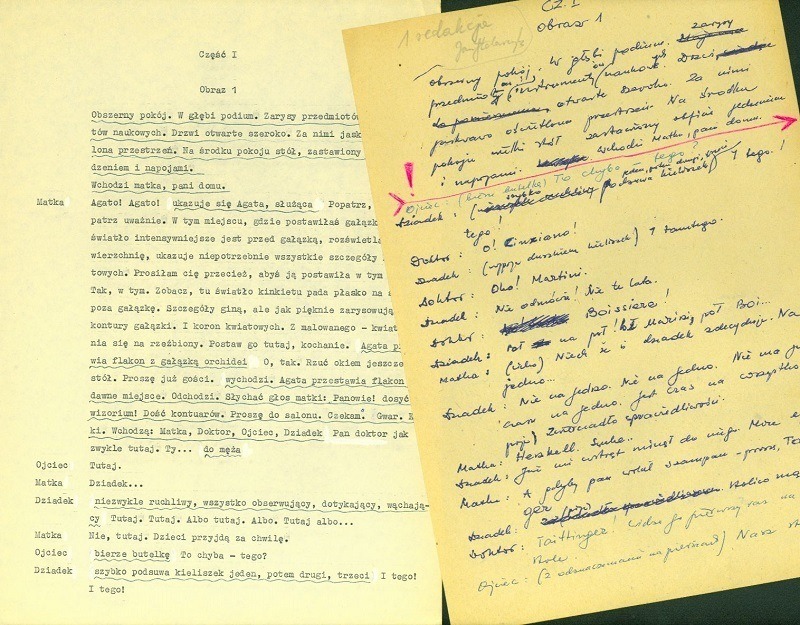 Część I
Obraz 1
Obszerny pokój. W głębi podium. Zarysy przedmiotów
tów naukowych. Drzwi otwarte szeroko. Za nimi jask
lona przestrzeń. Na środku pokoju stół, zastawiony
dzeniem i napojami.
Wchodzi matka, pani domu.
Matka Agato! Agato! ukazuje się Agata, służąca Popatrz,
patrz uważnie. W tym miejscu, gdzie postawiłaś gałązk
światło intensywniejsze jest przed gałązką, rozświetla
wierzchnię, ukazuje niepotrzebnie wszystkie szczegóły
towych. Prosiłam cię przecież, abyś ją postawiła w tym
Tak, w tym. Zobacz, tu światło kinkietu pada płasko na ś
poza gałązkę. Szczegóły giną, ale jak pięknie zarysowują
kontury gałązki. I koron kwiatowych. Z malowanego - kwiat
nia się na rzeźbiony. Postaw go tutaj, kochanie. Agata pr
wia flakon z gałązką orchidei O, tak. Rzuć okiem jeszcze
stół. Proszę już gości. wychodzi. Agata przestawia flakon
dawne miejsce. Odchodzi. Słychać głos matki: Panowie! dosyć
wizorium! Dość kontuarów. Proszę do salonu. Czekam. Gwar.
ki. Wchodzą: Matka, Doktor, Ojciec, Dziadek Pan doktor jak
zwykle tutaj. Ty... do męża
Ojciec Tutaj.
Matka Dziadek...
Dziadek niezwykle ruchliwy, wszystko obserwujący, dotykający, wąchają-
cy Tutaj. Tutaj. Albo tutaj. Albo. Tutaj albo...
Matka Nie, tutaj. Dzieci przyjdą za chwilę.
Ojciec bierze butelkę To chyba - tego?
Dziadek szybko podsuwa kieliszek jeden, potem drugi, trzeci I tego!
I tego!
CZ. I
1 redakcja
Obraz 1
Obszerny pokój. W głębi podium. zarysy
przedmiotów i instrumentów naukowych. Drzwi
otwarte szeroko. Za nimi
jaskrawo oświetlona przestrzeń. Na środku
pokoju wielki stół zastawiony obficie jedzeniem
i napojami. wchodzi Matka, pani domu.
!
Ojciec: (bierze butelkę) To chyba - tego?
Dziadek: (szybko podsuwa kieliszek jeden, potem drugi, trzeci) I tego!
I tego!
Doktor: O! Cinzano!
Dziadek: (wypija duszkiem kieliszek) I tamtego.
Doktor: Oho! Martini.
Dziadek: Nie odmówię! Nie te lata.
Doktor: Boissiere!
Dziadek: Pół na pół! Martini pół Boi...
Matka: (cicho) Niech się dziadek zdecyduje. Na
jedno...
Dziadek: Nie na jedno. Nie na jedno. Nie ma
czasu na jedno. Jest czas na wszystko
(pije) Zwierciadło sprawiedliwości.
Matka: Herszkell. Suche.
Dziadek: Już mi wstręt minął do niego.
Matka: A gdyby pan wolał szampan - proszę,
Dziadek:
Doktor: Taittinger! Widzę go pierwszy raz na
stole.
Ojciec: (z odznaczeniami na piersiach) Nasz